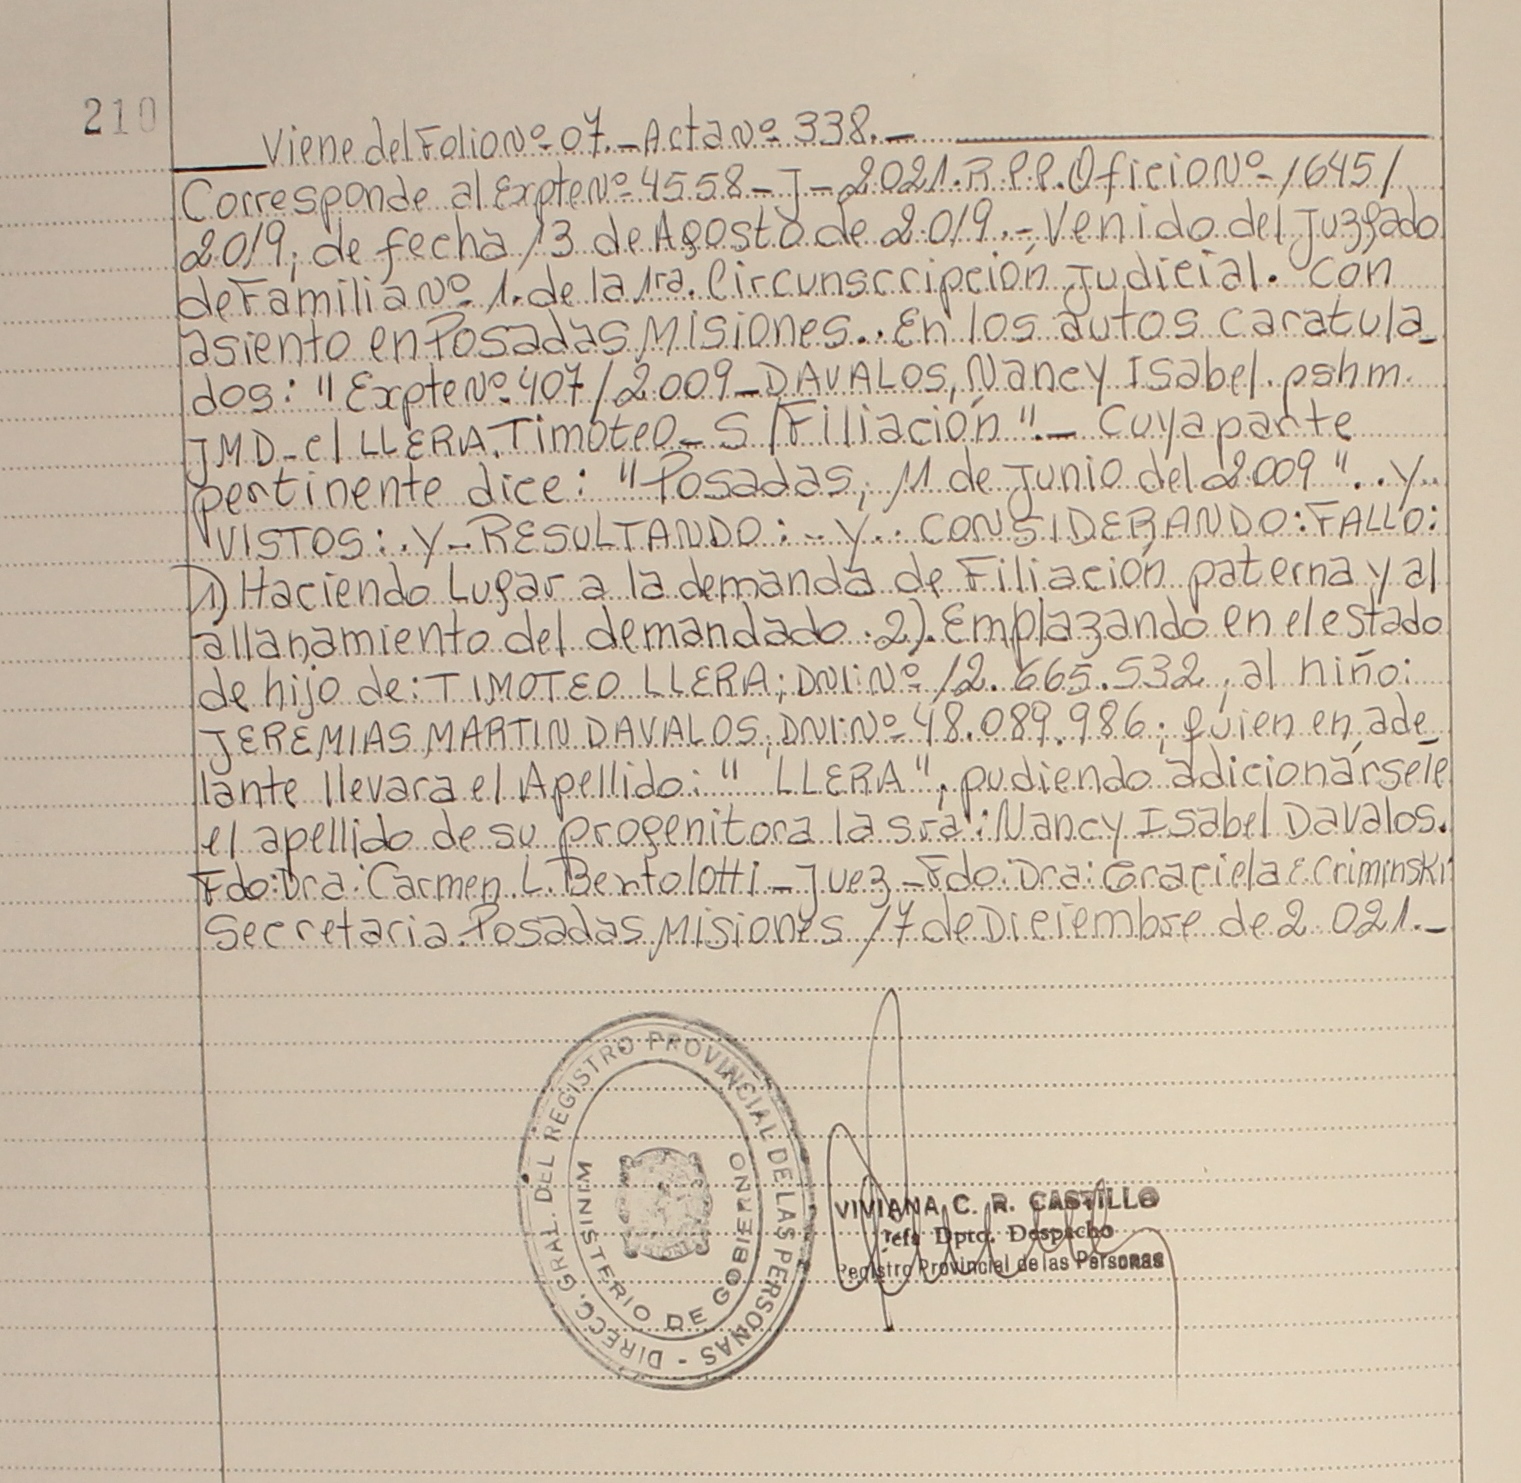 210
Viene del Folio Nº 07.-Acta Nº 338.-
Corresponde al Expte Nº 4558-J-2021.R.P.P.Oficio Nº 1645/
2019, de fecha 13 de Agosto de 2019.- Venido del Juzgado
de Familia Nº 1. de la 1ra. Circunsccripción Judicial. Con
asiento en Posadas Misiones.. En los autos caratula_
dos: "Expte Nº 407/2009-DAVALOS, Nancy Isabel.pshm.
JMD-c/ LLERA.Timoteo-S/Filiación".- Cuya parte
pertinente dice: "Posadas, 11 de Junio del 2009"..y..
VISTOS:.Y-RESULTANDO:-y..CONSIDERANDO:FALLO:
1) Haciendo Lugar a la demanda de Filiación paterna y al
allanamiento del demandado.2).Emplazando en el estado
de hijo de: TIMOTEO LLERA; DNI:Nº 12.665.532, al niño:
JEREMIAS MARTIN DAVALOS, DNI:Nº 48.089.986; quien en ade_
lante llevara el Apellido: "LLERA", pudiendo adicionársele
el apellido de su progenitora la sra: Nancy Isabel Davalos.
Fdo:Dra:Carmen.L.Bertolotti-Juez-Fdo:Dra:Graciela E.Criminski
Secretaria.Posadas Misiones 17 de Diciembre de 2021.-
DIRECC. GRAL. DEL REGISTRO PROVINCIAL DE LAS PERSONAS -
MINISTERIO DE GOBIERNO
VIVIANA C. R. CASTILLO
Jefa Dpto. Despacho
Registro Provincial de las Personas